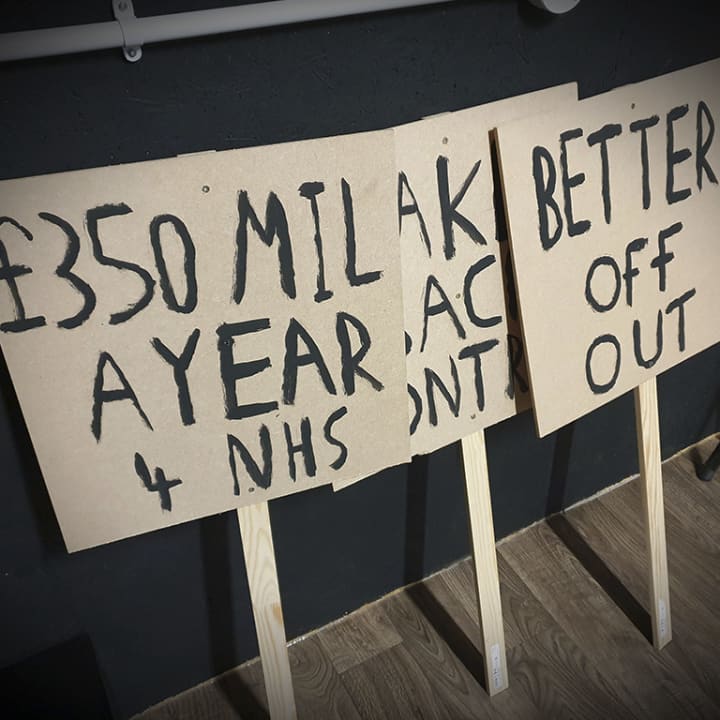 £350 MIL
A YEAR
4 NHS
AKE
AC
ONTR
BETTER
OFF
OUT